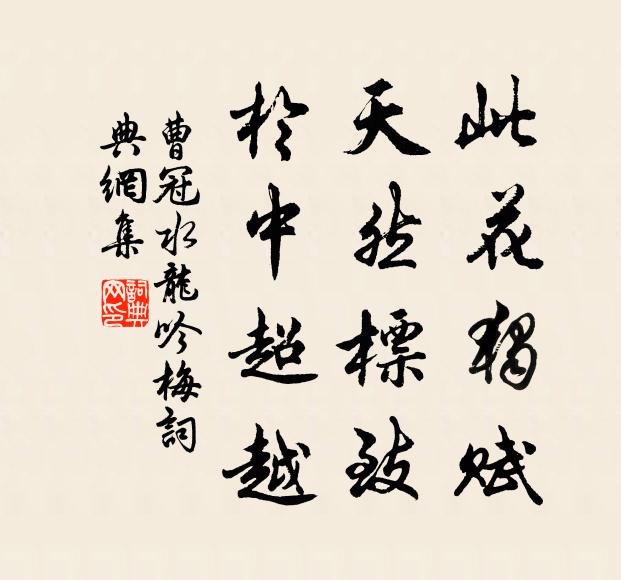 此花獨賦
天然標致
於中超越
曹冠水龍吟梅詞
典網集
詞典
网印